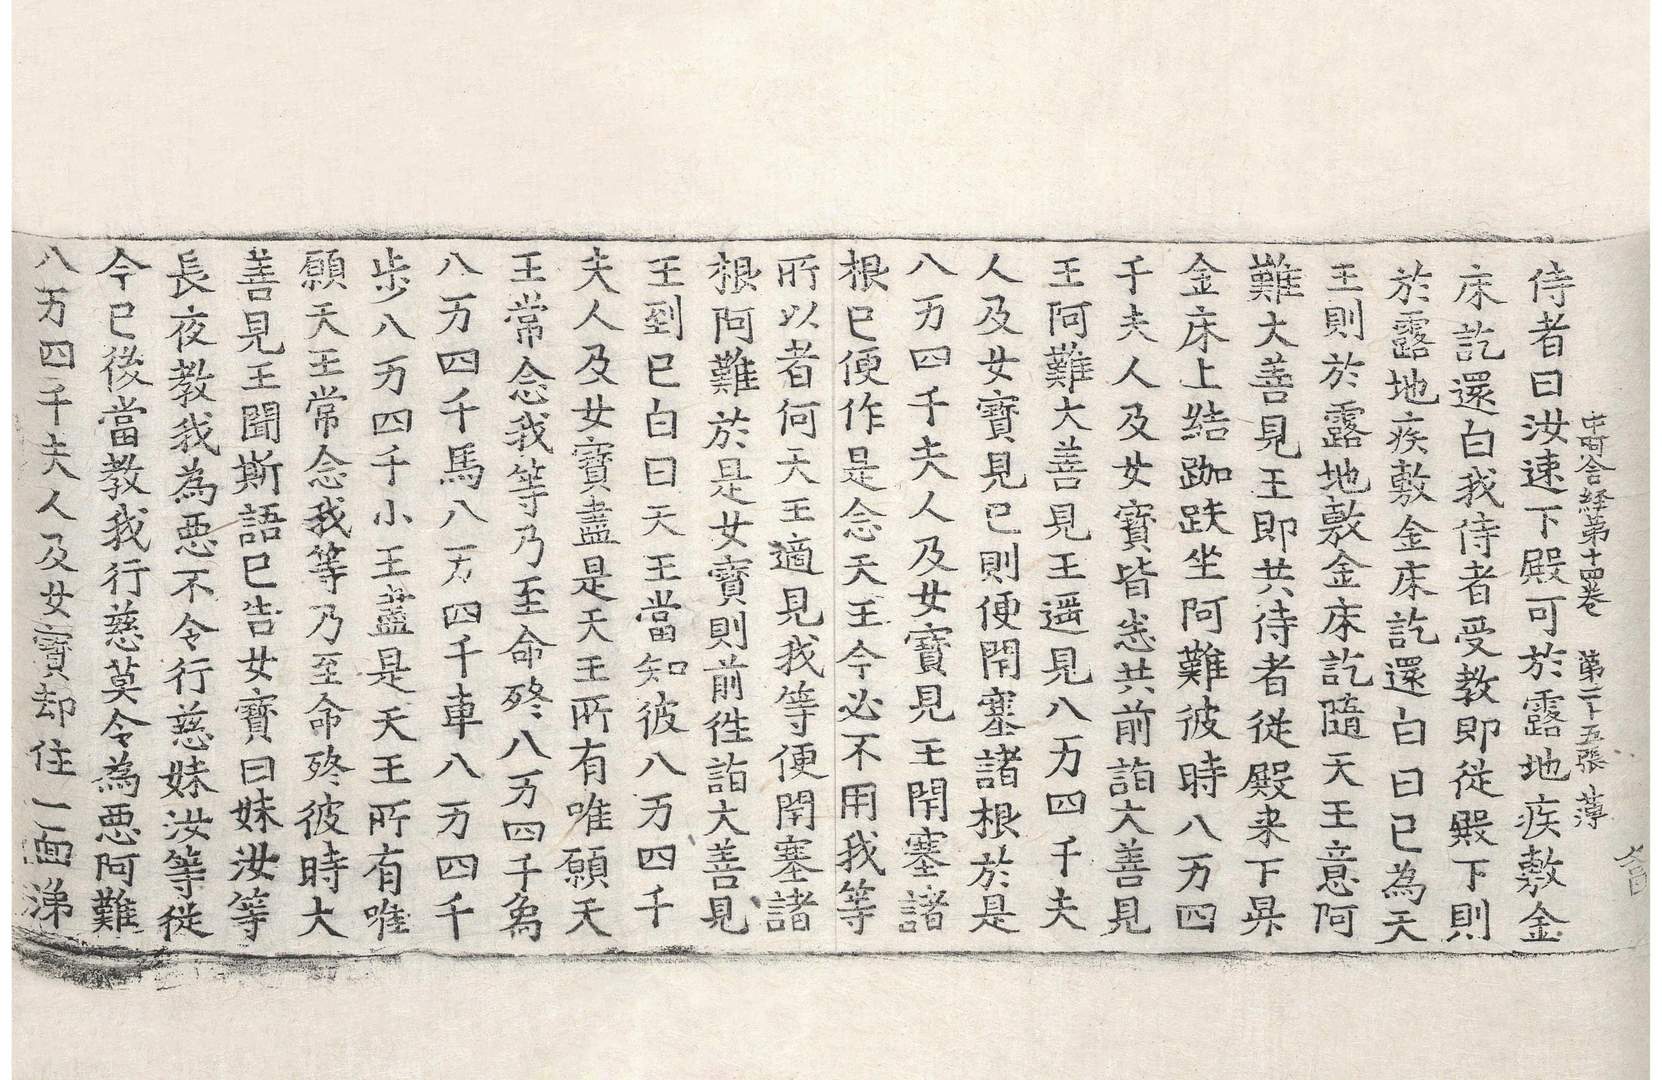 中阿含経第十四卷 第二十五張 薄
侍者曰汝速下殿可於露地疾敷金
床訖還白我侍者受教即從殿下則
於露地疾敷金床訖還白曰已為天
王則於露地敷金床訖隨天王意阿
難大善見王即共侍者從殿来下昇
金床上結跏趺坐阿難彼時八万四
千夫人及女寳皆悉共前詣大善見
王阿難大善見王遥見八万四千夫
人及女寳見已則便閇塞諸根於是
八万四千夫人及女寳見王閇塞諸
根已便作是念天王今必不用我等
所以者何天王適見我等便閇塞諸
根阿難於是女寳則前徃詣大善見
王到已白曰天王當知彼八万四千
夫人及女寳盡是天王所有唯願天
王常念我等乃至命終八万四千象
八万四千馬八万四千車八万四千
歩八万四千小王盡是天王所有唯
願天王常念我等乃至命終彼時大
善見王聞斯語已告女寳曰妹汝等
長夜教我為惡不令行慈妹汝等從
今已後當教我行慈莫令為惡阿難
八万四千夫人及女寳却住一面涕